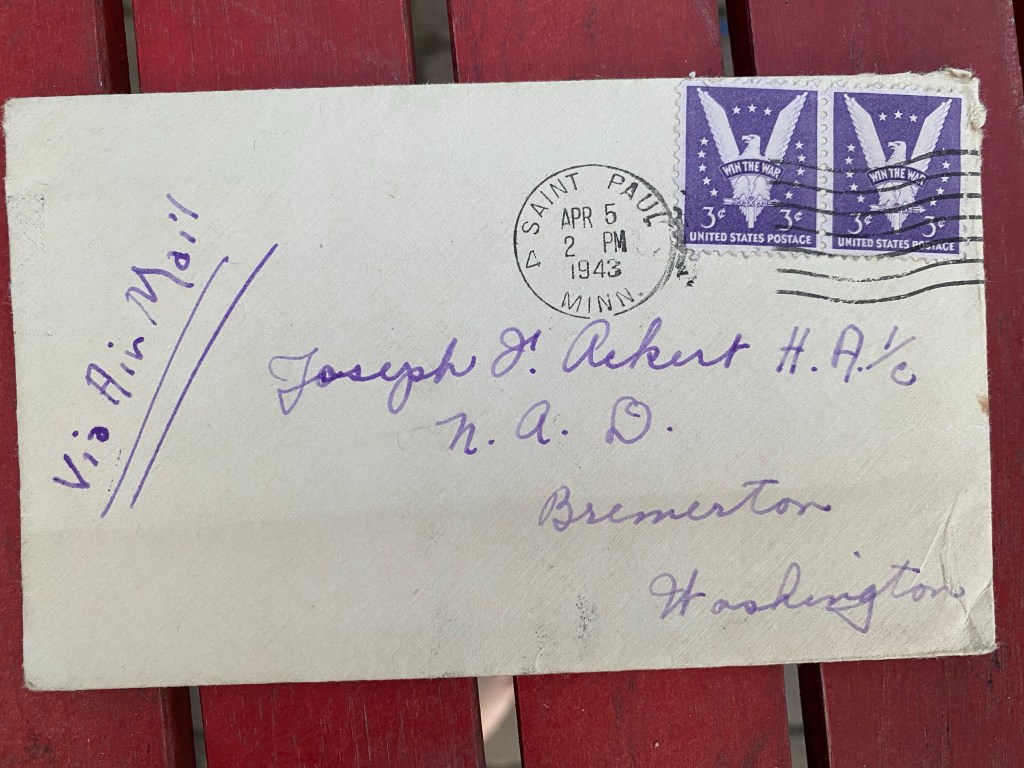 WIN THE WAR
3¢ 3¢
UNITED STATES POSTAGE
WIN THE WAR
3¢ 3¢
UNITED STATES POSTAGE
SAINT PAUL
APR 5
2 PM
1943
MINN.
Via Air Mail
Joseph J. Ackert H.A. 1/c
N. A. D.
Bremerton
Washington